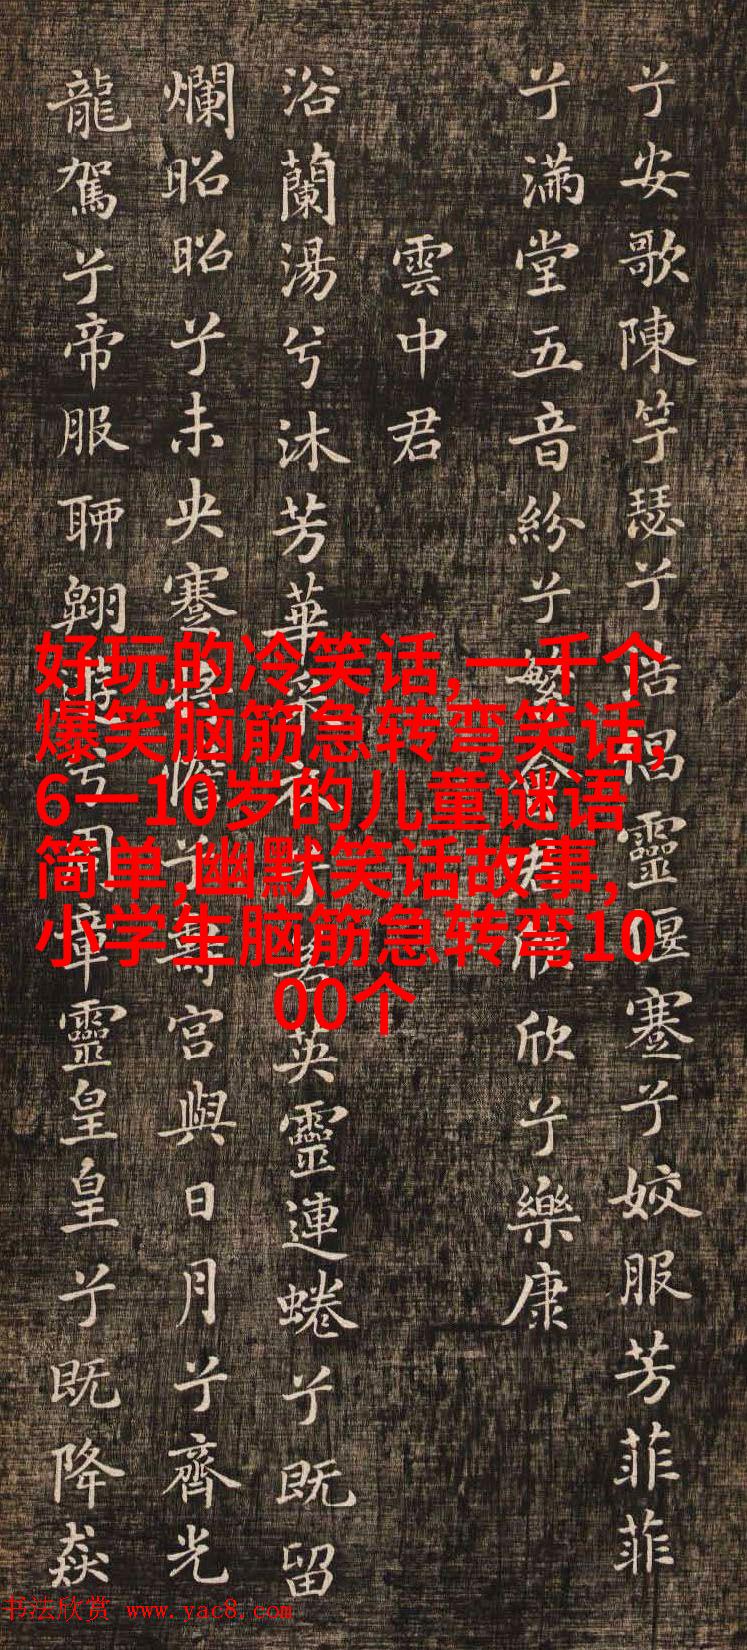 兮安歌陳竽瑟兮浩倡靈偃蹇兮姣服芳菲菲
兮滿堂五音紛兮繁會君欣欣兮樂康
雲中君
浴蘭湯兮沐芳華采衣兮若英靈連蜷兮既留
爛昭昭兮未央蹇將憺兮壽宮與日月兮齊光
龍駕兮帝服聊翱遊兮周章靈皇皇兮既降猋
好玩的冷笑话,一千个
爆笑脑筋急转弯笑话,
6一10岁的儿童谜语
简单,幽默笑话故事,
小学生脑筋急转弯10
00个
书法欣赏 www.yac8.com